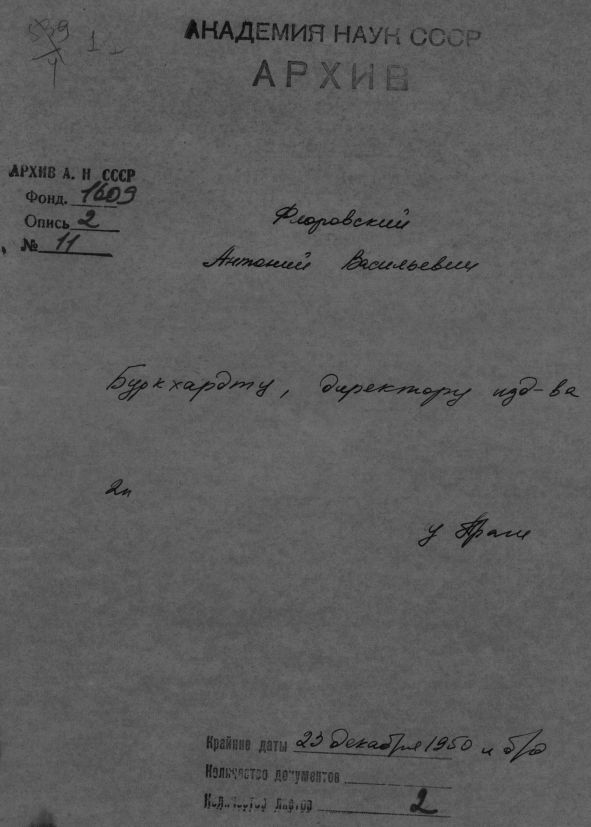 1-2
АКАДЕМИЯ НАУК СССР
АРХИВ
АРХИВ А. Н СССР
Фонд. 1609
Опись 2
№ 11
Флоровский
Антоний Васильевич
Буркхардту, директору изд-ва
2п
Крайние даты 23 декабря 1950 и б/д
Количество документов
Количество листов 2